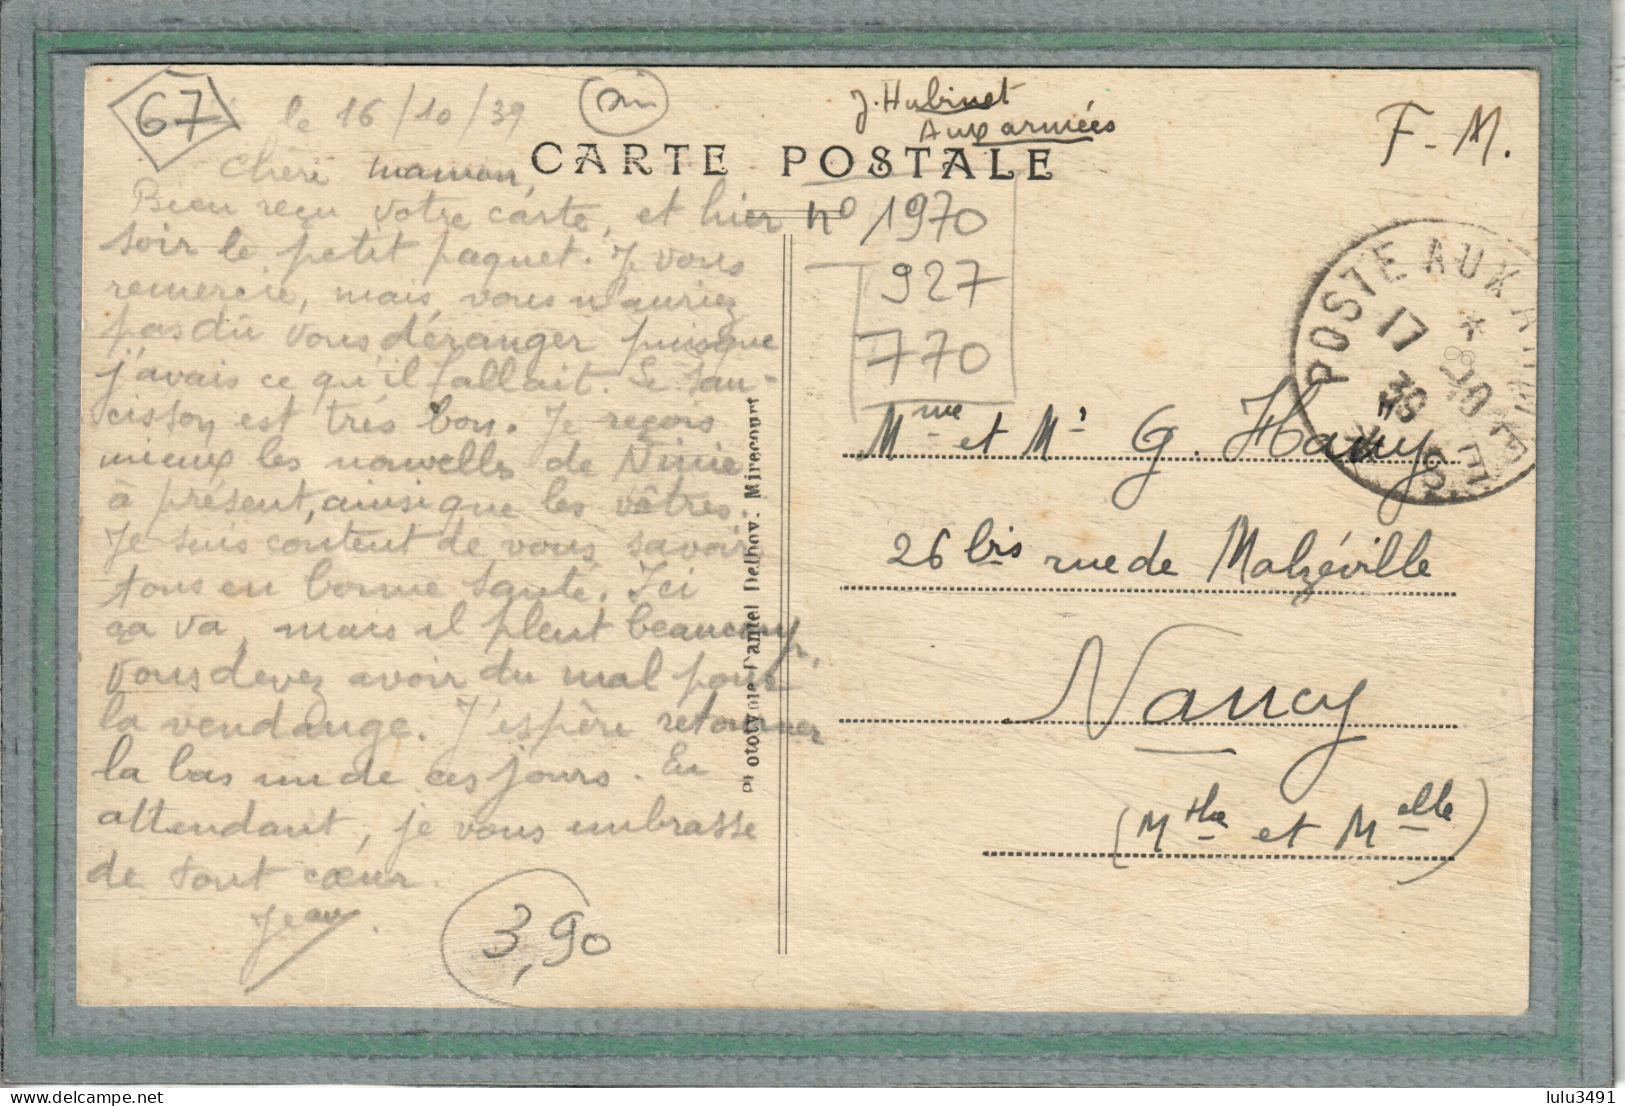 67
le 16/10/39
J. Hubinet
Aux armées
F-M.
CARTE POSTALE
Chère maman,
Bien reçu votre carte, et hier
soir le petit paquet. Je vous
remercie, mais vous n'auriez
pas dû vous déranger puisque
j'avais ce qu'il fallait. Le sau-
cisson est très bon. Je reçois
mieux les nouvelles de Ninie
à présent, ainsi que les vôtres.
Je suis content de vous savoir
tous en bonne santé. Ici
ça va, mais il pleut beaucoup,
vous devez avoir du mal pour
la vendange. J'espère retourner
la bas un de ces jours. En
attendant, je vous embrasse
de tout cœur.
Jean.
3,90
n° 1970
927
770
POSTE AUX ARMEES
17
39
Mme et Mr G. Hauy
26 bis rue de Malzéville
Nancy
(Mthe et Melle)
Phototypie Daniel Delboy. Mirecourt
lulu3491